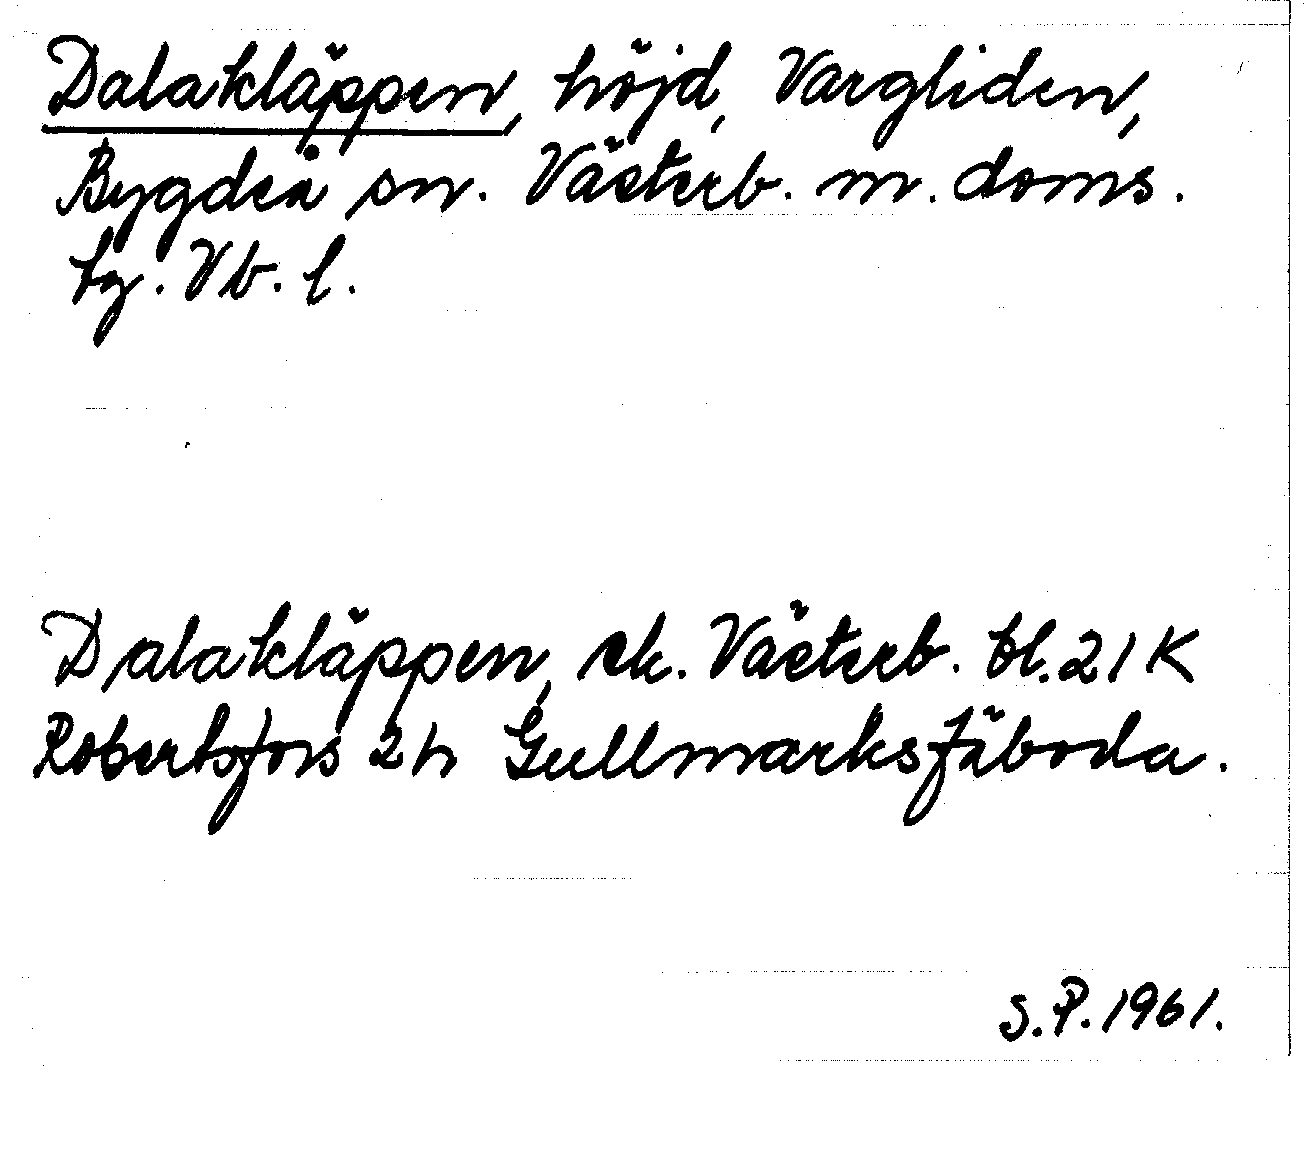 Dalakläppen, höjd, Vargliden,
Bygdeå sn. Västerb. m. doms.
tg. Vb. l.
Dalakläppen, ek. Västerb. bl. 21 K
Robertsfors 2 h Gullmarksfäboda.
S.P. 1961.